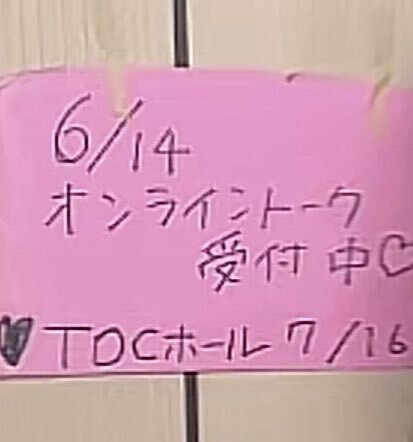 6/14
オンライントーク
受付中♡
♥TOCホール 7/16